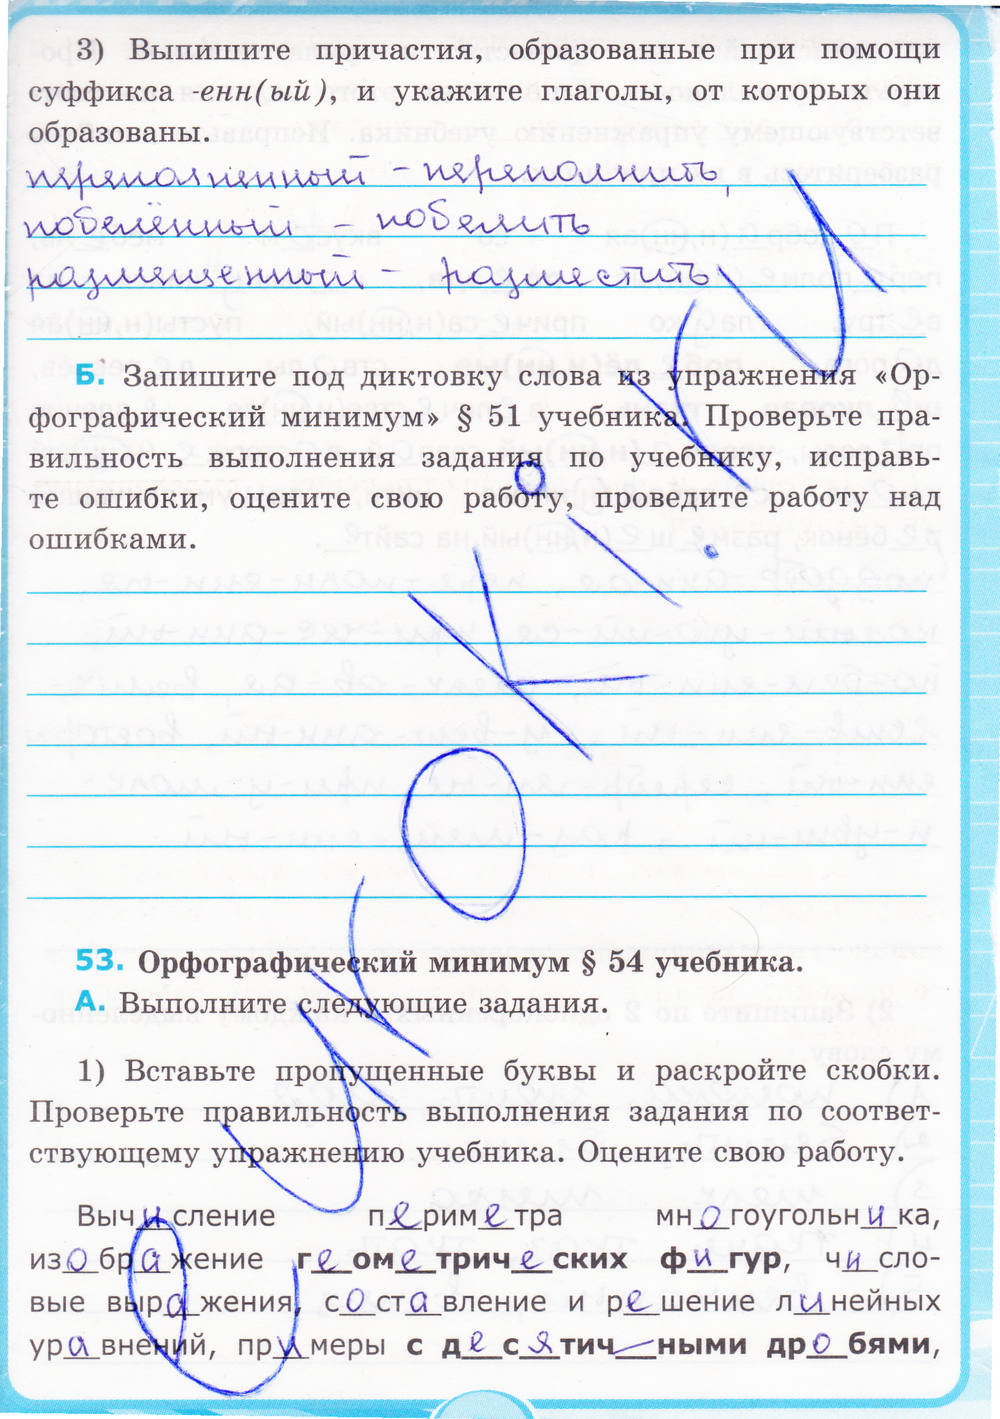 3) Выпишите причастия, образованные при помощи
суффикса -енн(ый), и укажите глаголы, от которых они
образованы.
переполненный - переполнить,
побелённый - побелить
размещенный - разместить
Б. Запишите под диктовку слова из упражнения «Ор-
фографический минимум» § 51 учебника. Проверьте пра-
вильность выполнения задания по учебнику, исправь-
те ошибки, оцените свою работу, проведите работу над
ошибками.
53. Орфографический минимум § 54 учебника.
А. Выполните следующие задания.
1) Вставьте пропущенные буквы и раскройте скобки.
Проверьте правильность выполнения задания по соответ-
ствующему упражнению учебника. Оцените свою работу.
Выч_и_сление п_е_рим_е_тра мн_о_гоугольн_и_ка,
из_о_бр_а_жение г_е_ом_е_трич_е_ских ф_и_гур, ч_и_сло-
вые выр_а_жения, с_о_ст_а_вление и р_е_шение л_и_нейных
ур_а_внений, пр_и_меры с д_е_с_я_тич_-_ными др_о_бями,